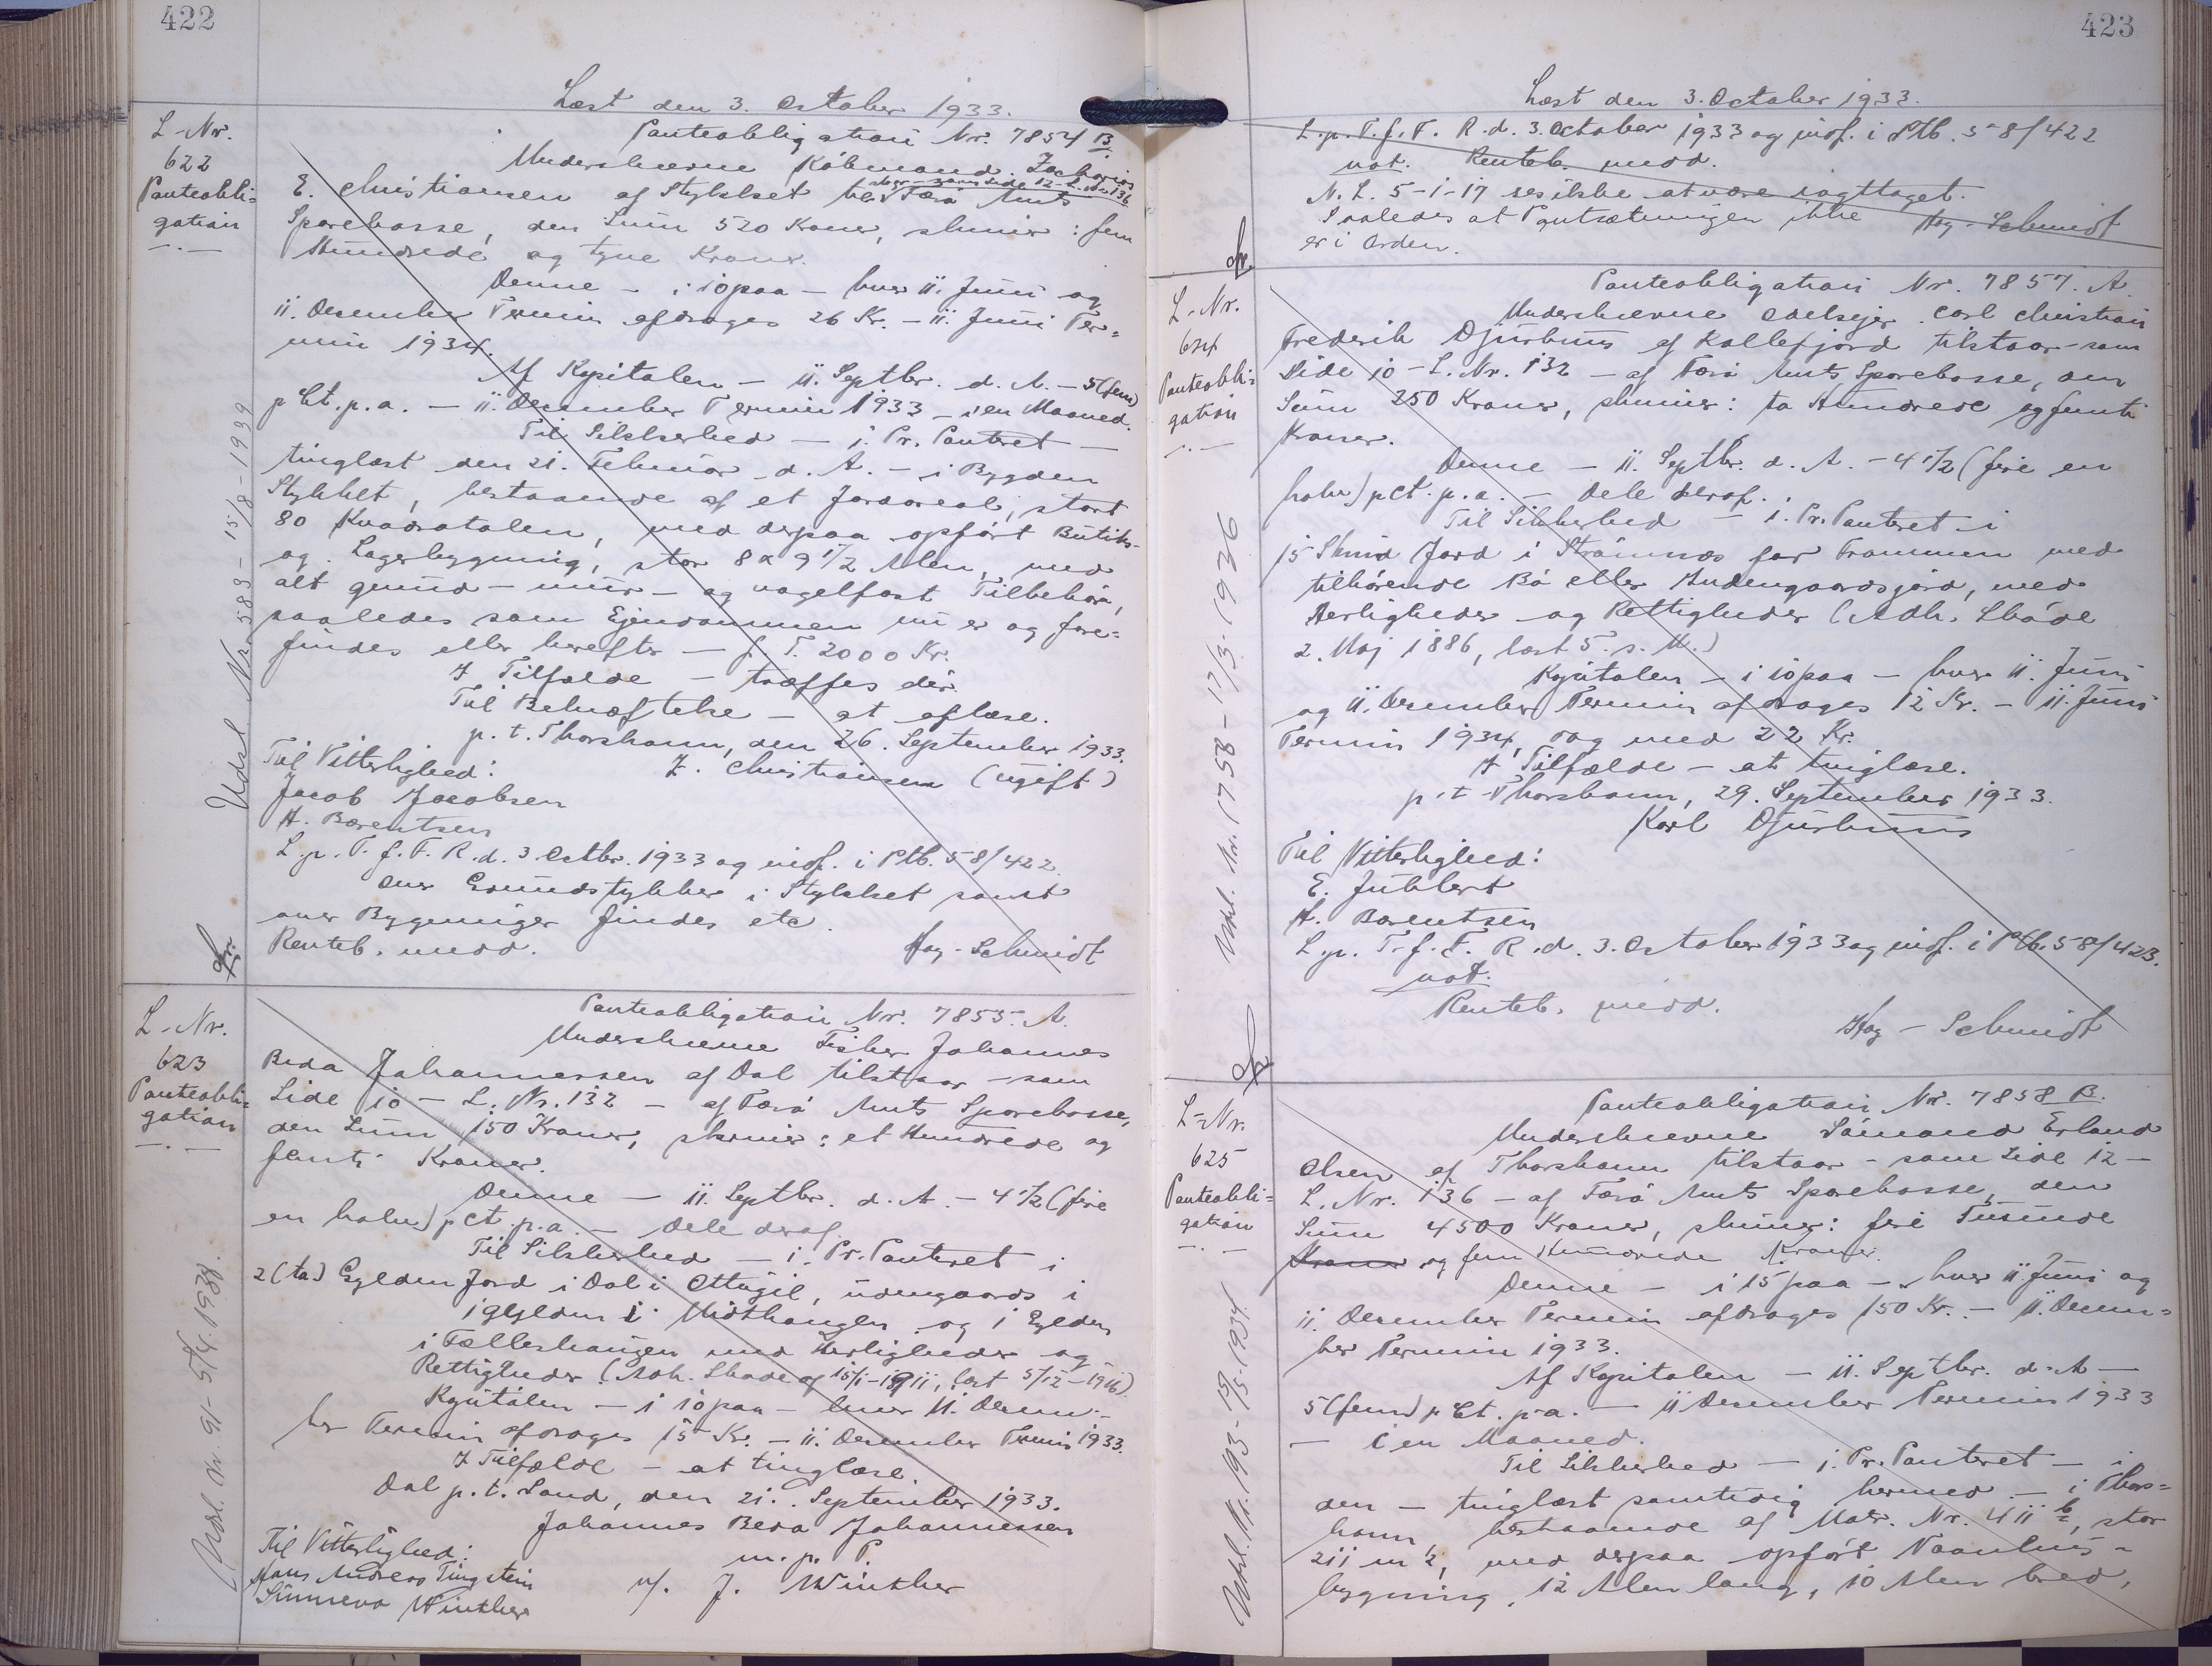 422
Læst den 3. October 1933.
L-Nr.
622
Panteobli=
gation
Panteobligation Nr. 7854 B.
Underskrevne Købmand Zacharias
E. Christiansen af Stykket tilstaar - som Side 12 - L. Nr. 136 Færø Amts
Sparekasse, den Sum 520 Kroner, skriver: fem
Hundrede og tyve Kroner.
Denne - i 10 paa - hver 11. Juni og
11. December Termin afdrages 26 Kr. - 11. Juni Ter=
min 1934.
Af Kapitalen - 11. Septbr. d. A. - 5 (fem)
p Ct. p.a. - 11. December Termin 1933 - i en Maaned.
Til Sikkerhed - 1. Pr. Panteret -
tinglæst den 21. Februar d. A. - i Bygden
Stykket, bestaaende af et Jordareal, stort
80 Kvadratalen, med derpaa opført Butiks-
og Lagerbygning, stor 8 x 9 1/2 Alen, med
alt grund - mur - og nagelfast Tilbehør,
saaledes som Ejendommen nu er og fore=
findes eller herefter - f. T. 2000 Kr.
I Tilfælde - træffes der.
Til Bekræftelse - at aflæse.
p. t. Thorshavn, den 26. September 1933.
Z. Christiansen (ugift)
Til Vitterlighed:
Jacob Jacobsen
H. Bærentsen
L. p. T. f. F. R. d. 3 Octbr. 1933 og indf. i Ptb. 58/422.
Over Grundstykker i Stykket samt
over Bygninger findes etc.
Renteb. medd.
Høg-Schmidt
Udsl. Nr. 583 - 15/8 - 1939
L-Nr.
623
Panteobli=
gation
Panteobligation Nr. 7855. A.
Underskrevne Fisker Johannes
Beda Johannessen af Dal tilstaar - som
Side 10 - L. Nr. 132 - af Færø Amts Sparekasse,
den Sum 150 Kroner, skriver: et Hundrede og
femti Kroner.
Denne - 11. Septbr. d. A. - 4 1/2 (fire
en halv) p Ct. p.a. - Dele deraf.
Til Sikkerhed - 1. Pr. Panteret i
2 (to) Gylden Jord i Dal i Ottugil, udengaards i
1 Gylden i Midthaugen og 1 Gylden
i Fælleshaugen med Herligheder og
Rettigheder (Adk. Skøde af 15/1-1911, læst 5/12-1916).
Kapitalen - i 10 paa - hver 11. Decem-
ber Termin afdrages 15 Kr. - 11. December Termin 1933.
I Tilfælde - at tinglæse.
Dal p. t. Sand, den 21. September 1933.
Johannes Beda Johannessen
m. p. P.
v/. J. Winther
Til Vitterlighed:
Hans Andreas Tingstein
Sunneva Winther
Udsl. Nr. 91 - 5/4. 1938.
423
Læst den 3. October 1933.
L. p. T. f. F. R. d. 3. October 1933 og indf. i Ptb. 58/422
not. Renteb. medd.
N. L. 5-1-17 ses ikke at være iagttaget.
Saaledes at Pantsætningen ikke
er i Orden.
Høg-Schmidt
L-Nr.
624
Panteobli=
gation
Panteobligation Nr. 7857. A
Underskrevne Odelsejer Carl Christian
Frederik Djurhuus af Kollefjord tilstaar - som
Side 10 - L. Nr. 132 - af Færø Amts Sparekasse, den
Sum 250 Kroner, skriver: to Hundrede og femti
Kroner.
Denne - 11. Septbr. d. A. - 4 1/2 (fire en
halv) p Ct. p.a. - Dele deraf.
Til Sikkerhed - 1. Pr. Panteret i
15 Skind Jord i Strømnæs for Frammen med
tilhørende Bø eller Indengaardsjord, med
Herligheder og Rettigheder (Adk. Skøde
2. Maj 1886, læst 5. s. M.)
Kapitalen - i 10 paa - hver 11. Juni
og 11. December Termin afdrages 12 Kr. - 11. Juni
Termin 1934, dog med 22 Kr.
I Tilfælde - at tinglæse.
p. t. Thorshavn, 29. September 1933.
Karl Djurhuus
Til Vitterlighed:
E. Juhlert
H. Bærentsen
L. p. T. f. F. R. d. 3. October 1933 og indf. i Ptb. 58/423.
not.
Renteb. medd.
Høg-Schmidt
Udsl. Nr. 1758 - 17/3. 1936
L-Nr.
625
Panteobli=
gation
Panteobligation Nr. 7858 B.
Underskrevne Sømand Erland
Olsen af Thorshavn tilstaar - som Side 12 -
L. Nr. 136 - af Færø Amts Sparekasse, den
Sum 4500 Kroner, skriver: fire Tusinde
Kroner og fem Hundrede Kroner.
Denne - i 15 paa - hver 11. Juni og
11. December Termin afdrages 150 Kr. - 11. Decem=
ber Termin 1933.
Af Kapitalen - 11. Septbr. d. A -
5 (fem) p Ct. p.a. - 11 December Termin 1933
- i en Maaned.
Til Sikkerhed - 1. Pr. Panteret - i
den - tinglæst samtidig hermed - i Thors=
havn bestaaende af Matr. Nr. 411 b, stor
211 m 2, med derpaa opført Vaanhus-
bygning, 12 Alen lang, 10 Alen bred,
Udsl. Nr. 193 - 1934.